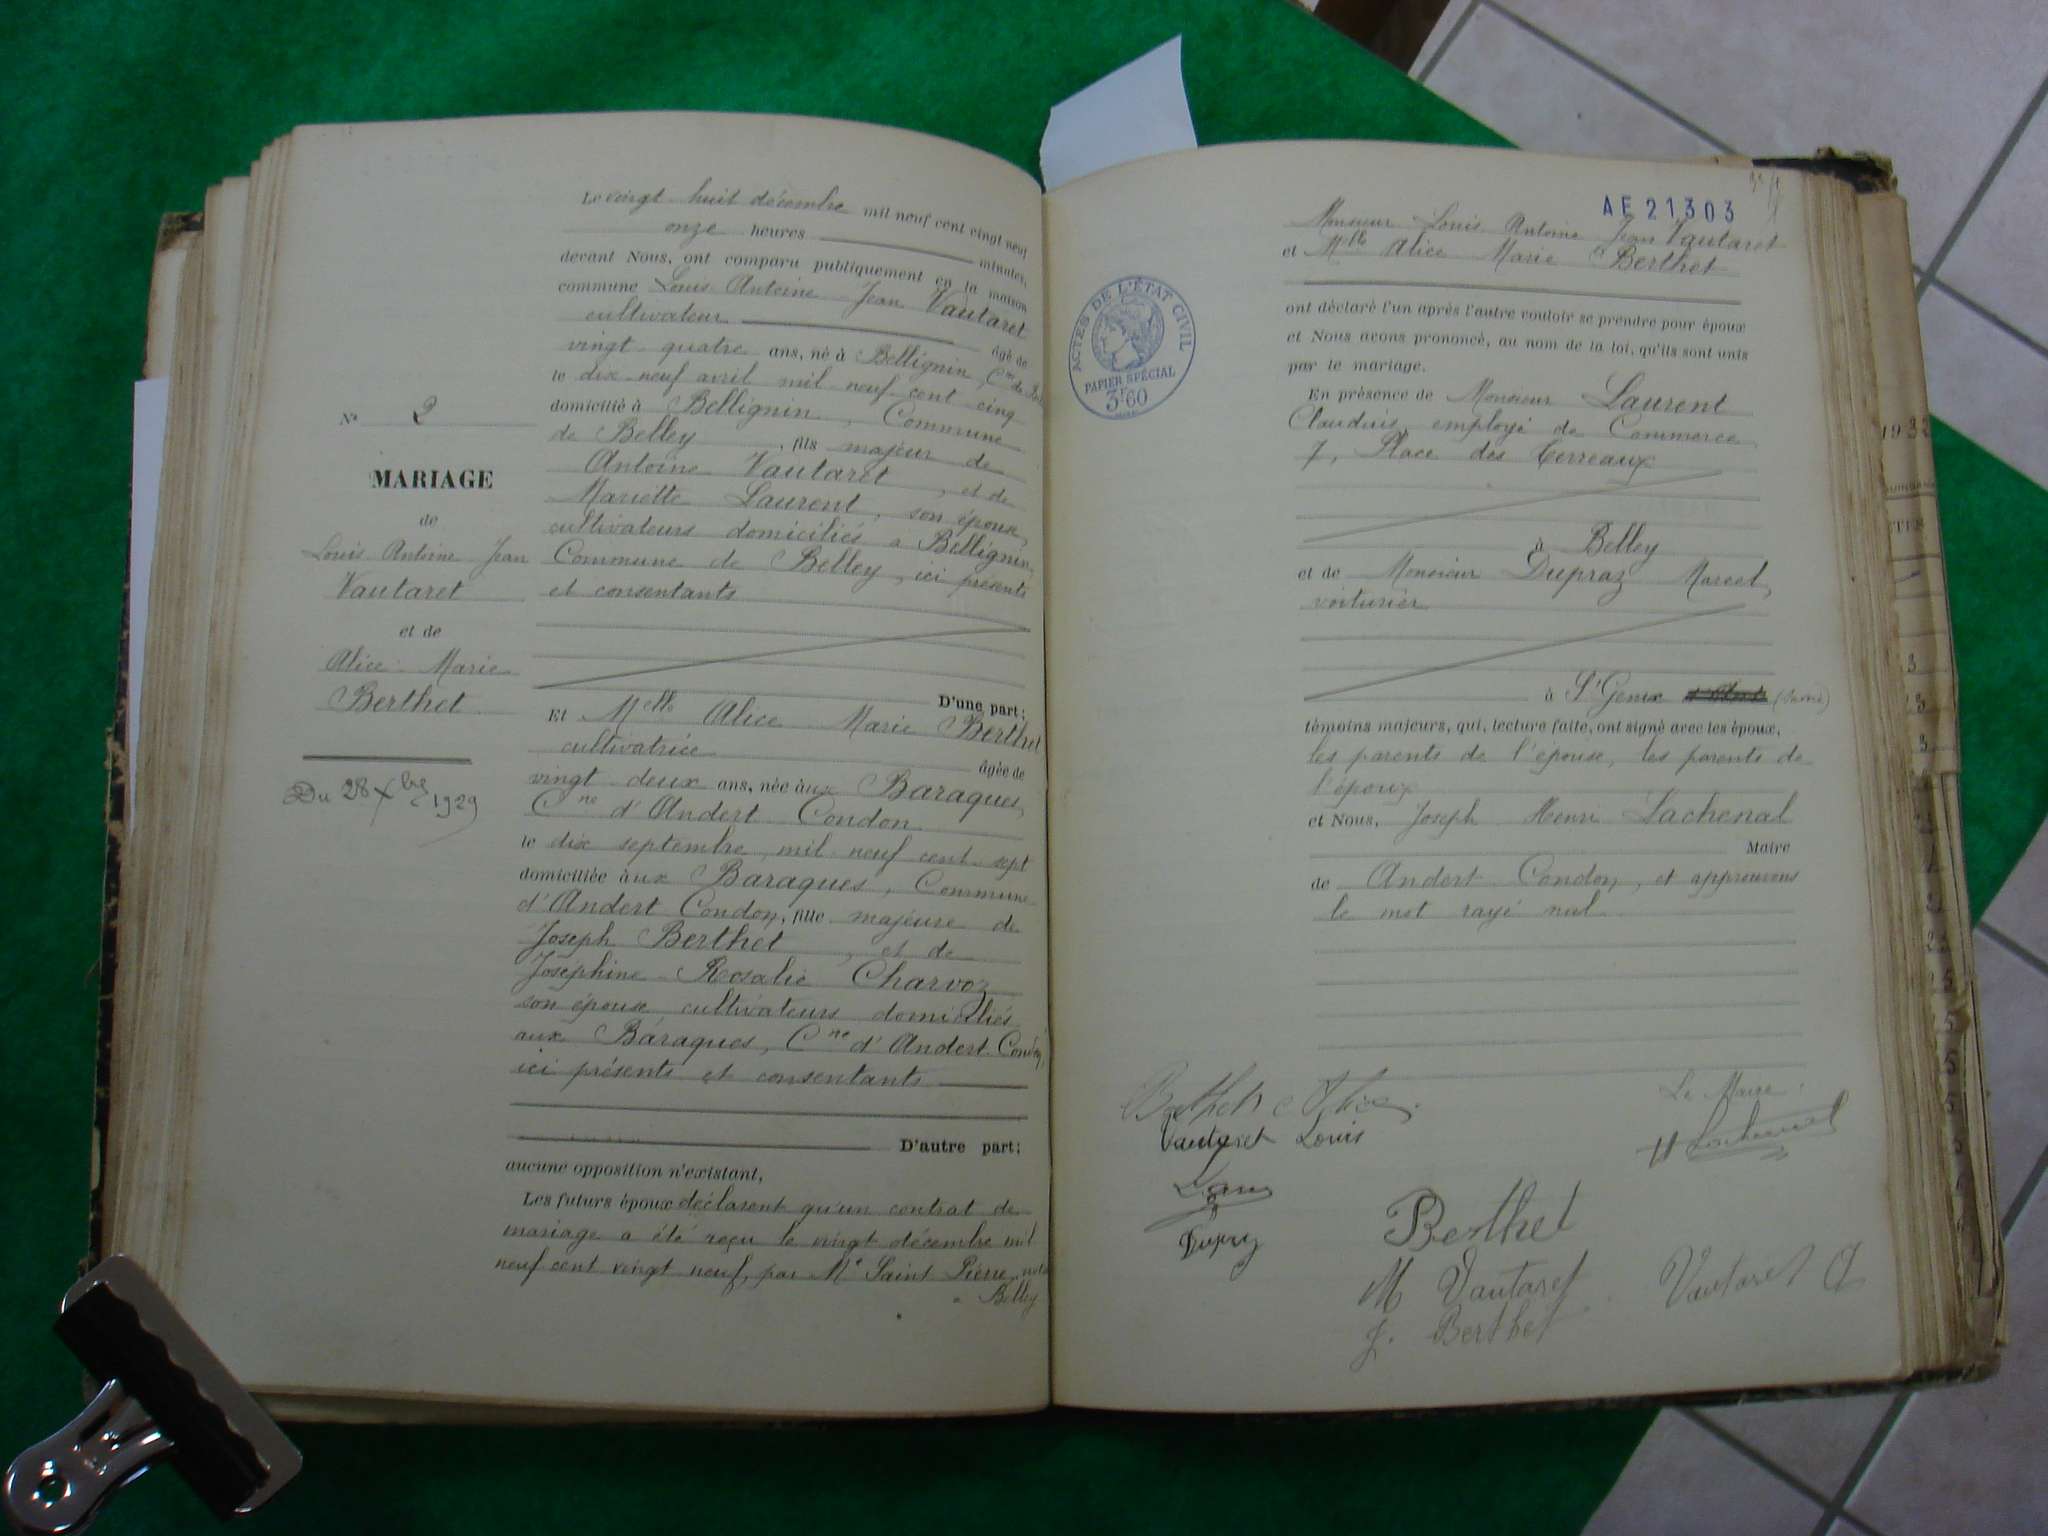 Le vingt huit décembre mil neuf cent vingt neuf
onze heures minutes,
devant Nous, ont comparu publiquement en la maison
commune Louis Antoine Jean Vautaret
cultivateur âgé de
vingt quatre ans, né à Bellignin, Cne de
le dix neuf avril mil neuf cent cinq
domicilié à Bellignin, Commune
de Belley, fils majeur de
Antoine Vautaret, et de
Mariette Laurent, son épouse,
cultivateurs domiciliés à Bellignin
Commune de Belley, ici présents
et consentants
D'une part;
Et Melle Alice Marie Berthet
cultivatrice âgée de
vingt deux ans, née aux Baraques,
Cne d'Andert Condon
le dix septembre, mil neuf cent sept
domiciliée aux Baraques, Commune
d'Andert Condon, fille majeure de
Joseph Berthet, et de
Joséphine Rosalie Charvoz
son épouse, cultivateurs domiciliés
aux Baraques, Cne d'Andert-Condon,
ici présents et consentants
D'autre part;
aucune opposition n'existant,
Les futurs époux déclarent qu'un contrat de
mariage a été reçu le vingt décembre mil
neuf cent vingt neuf, par Me Saint Pierre, not.
à Belley
No 2
MARIAGE
de
Louis Antoine Jean
Vautaret
et de
Alice Marie
Berthet
Du 28 Xbre 1929
AE 21303
Monsieur Louis Antoine Jean Vautaret
et Mlle Alice Marie Berthet
ACTES DE L'ÉTAT CIVIL
PAPIER SPÉCIAL
3F60
ont déclaré l'un après l'autre vouloir se prendre pour époux
et Nous avons prononcé, au nom de la loi, qu'ils sont unis
par le mariage.
En présence de Monsieur Laurent
Claudius, employé de Commerce
7, Place des Terreaux
à Belley
et de Monsieur Dupraz Marcel,
voiturier
à St Genix (Savoie)
témoins majeurs, qui, lecture faite, ont signé avec les époux,
les parents de l'épouse, les parents de
l'époux
et Nous, Joseph Henri Lachenal
Maire
de Andert Condon, et approuvons
le mot rayé nul.
Berthet Alice
Le Maire
Vautaret Louis
H Lachenal
Berthet
M Vautaret
Vautaret A
J. Berthet
193